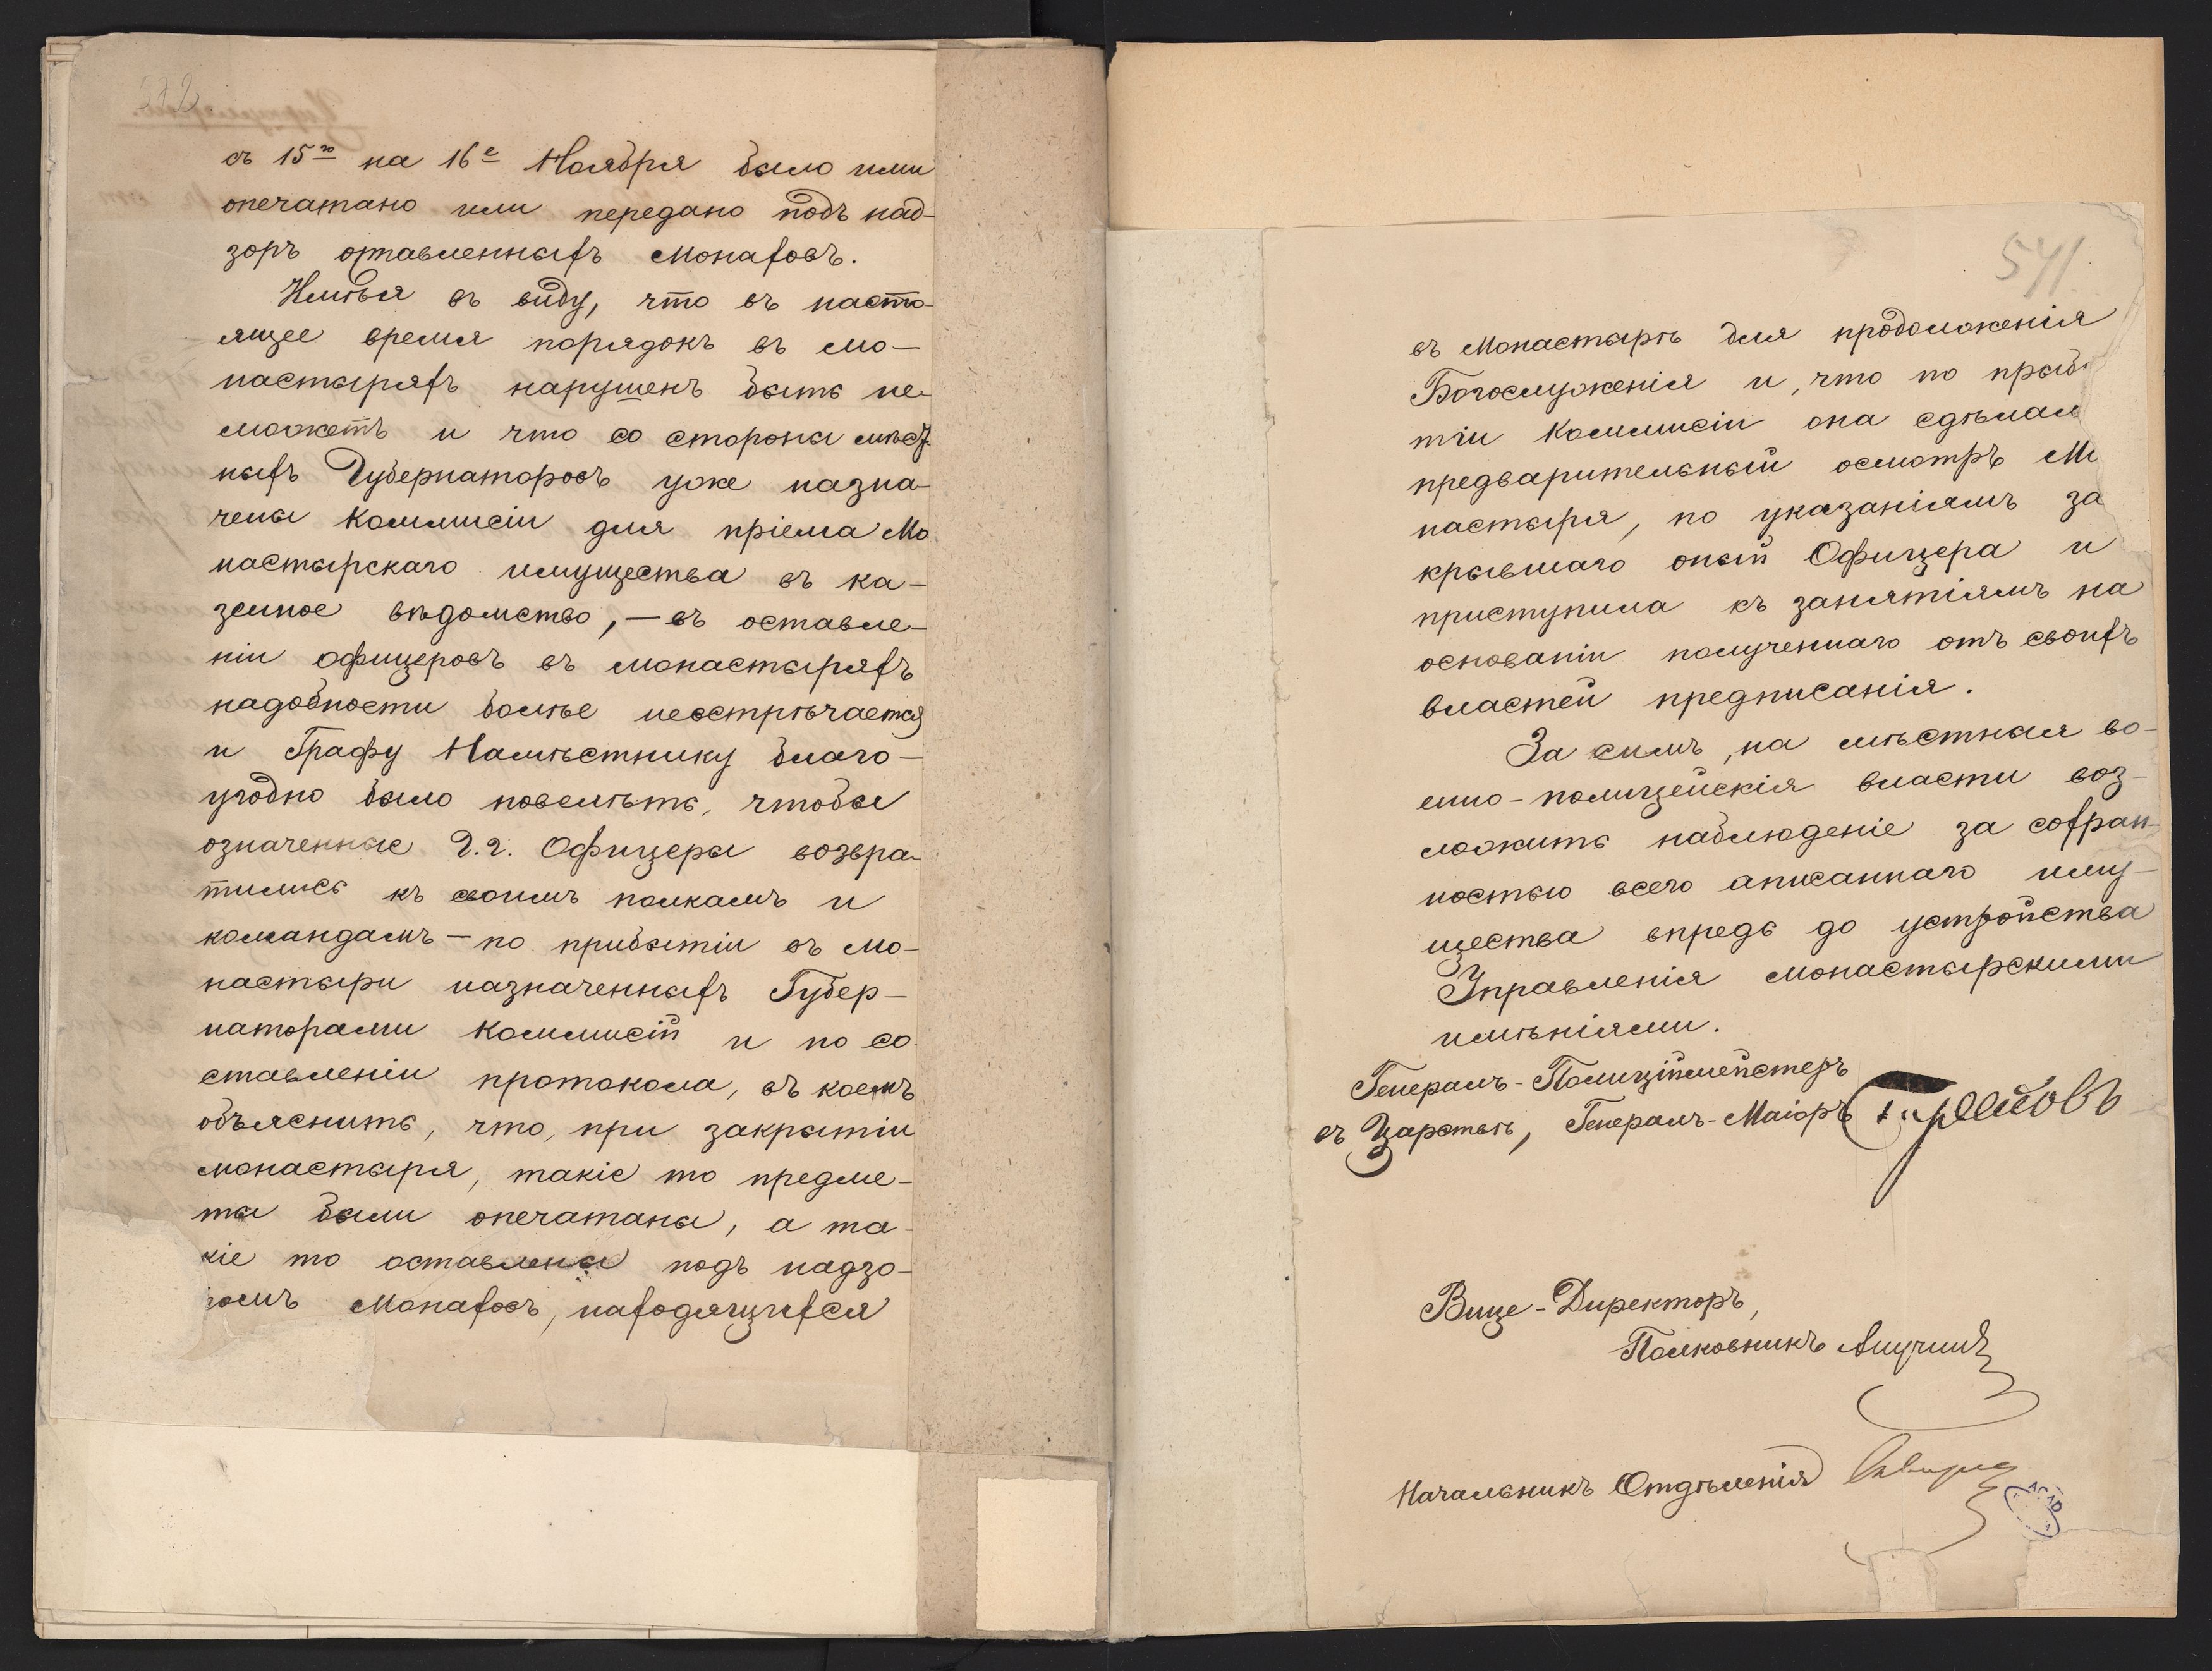 съ 15го на 16е Ноября было ими
опечатано или передано подъ над-
зоръ оставленныхъ Монаховъ.
Имѣя въ виду, что въ насто-
ящее время порядокъ въ мо-
настыряхъ нарушенъ быть не
можетъ и что со стороны мѣст-
ныхъ Губернаторовъ уже назна-
чены Коммисіи для пріема Мо
настырскаго имущества въ ка-
зенное вѣдомство, — въ оставле-
ніи офицеровъ въ монастыряхъ
надобности болѣе невстрѣчается
и Графу Намѣстнику благо-
угодно было повелѣть, чтобы
означенные Г.г. Офицеры возвра-
тились къ своимъ полкамъ и
командамъ — по прибытіи въ мо-
настыри назначенныхъ Губер-
наторами Коммисій и по со
ставленіи протокола, въ коемъ
объяснить, что, при закрытіи
монастыря, такіе то предме-
ты были опечатаны, а та-
кіе то оставлены подъ надзо-
ромъ Монаховъ, находящихся
541
въ Монастырѣ для продолженія
Богослуженія и, что по прибы
тіи Коммисіи она сдѣлал
предварительный осмотръ Мо
настыря, по указаніямъ за
крывшаго оный Офицера и
приступила къ занятіямъ на
основаніи полученнаго отъ своихъ
властей предписанія.
За симъ, на мѣстныя во-
енно-полицейскія власти воз-
ложить наблюденіе за сохран-
ностью всего описаннаго иму-
щества впредь до устройства
Управленія монастырскими
имѣніями.
Генералъ-Полиціймейстеръ
въ Царствѣ, Генералъ-Маіоръ
Вице-Директоръ,
Полковникъ Анучинъ
Начальникъ Отдѣленія